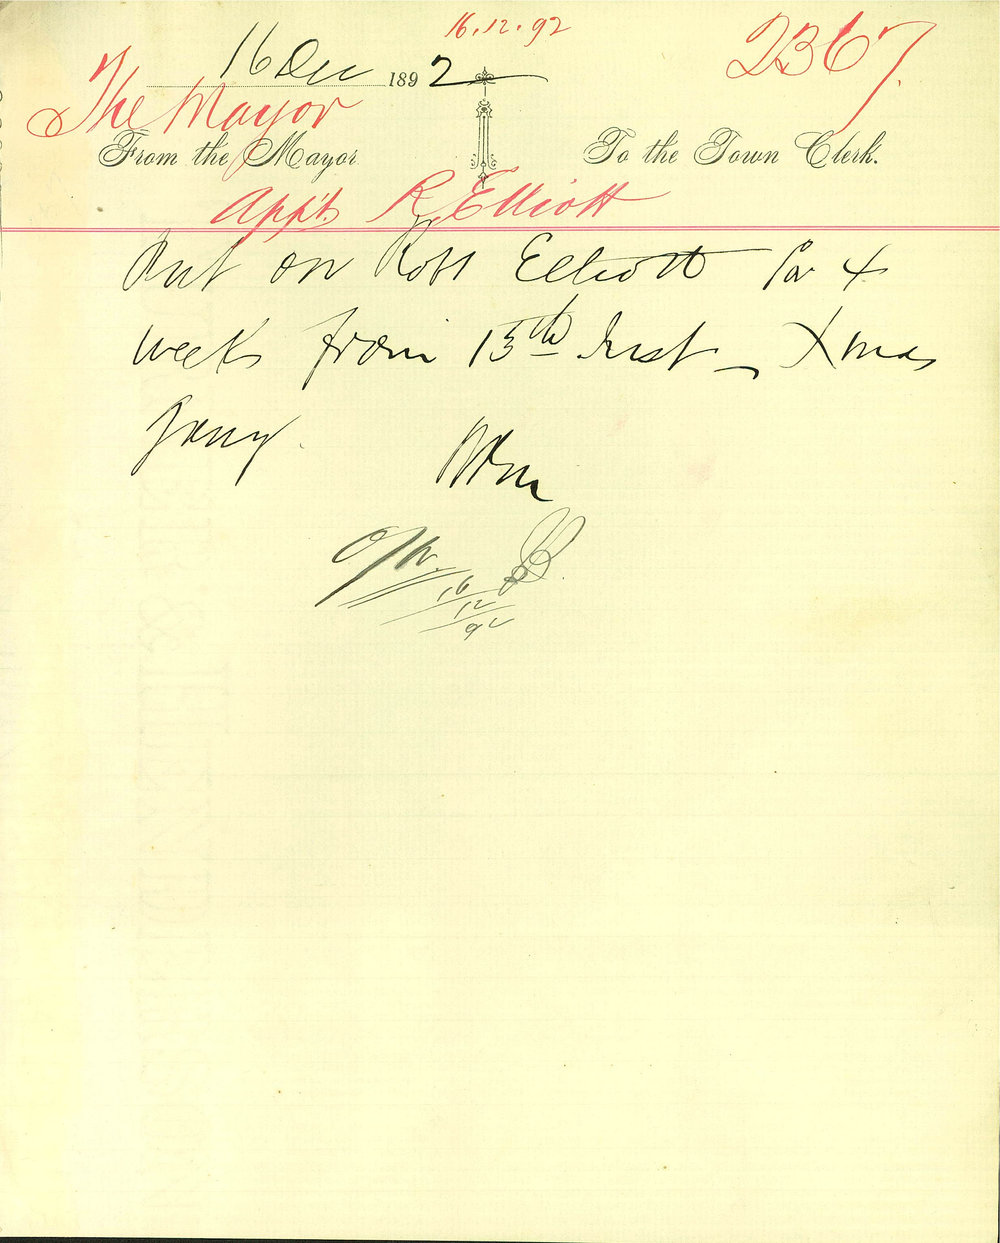 16.12.92
2367.
16 Dec 1892
The Mayor
From the Mayor
To the Town Clerk.
App't. R. Elliott
Put on Robt Elliott for 4
weeks from 15th Inst – Xmas
gang.
16
12
92